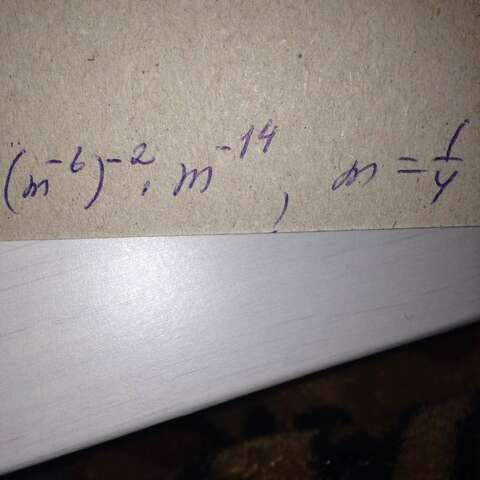 (m⁻⁶)⁻² · m⁻¹⁴, m = 1/4